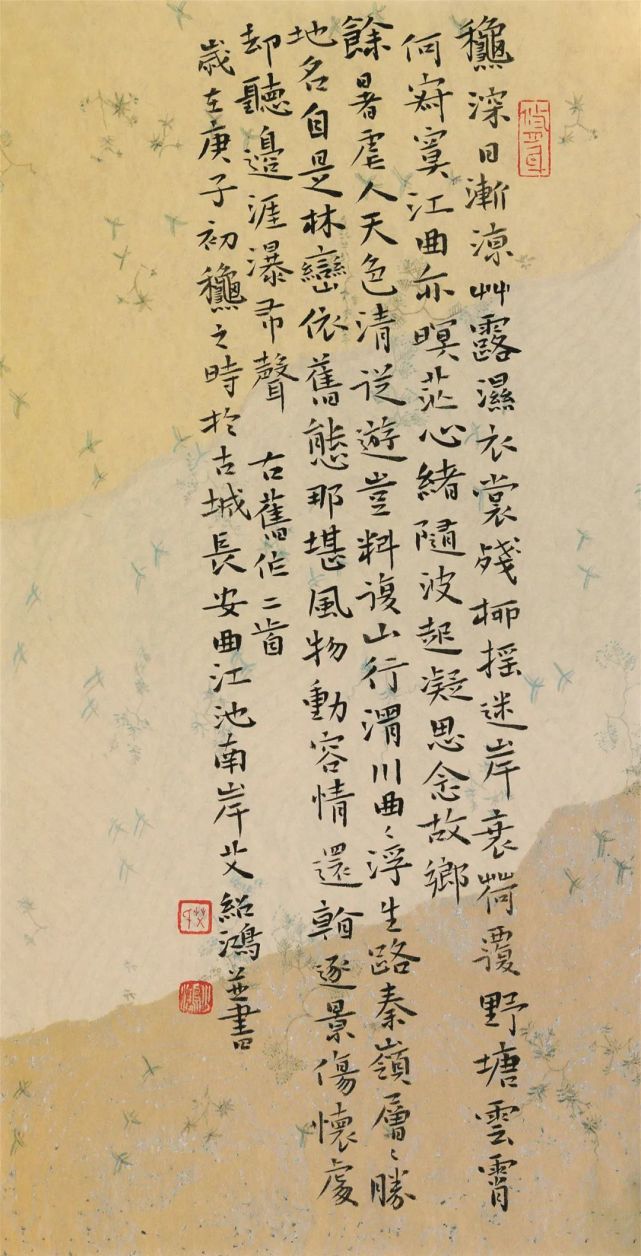 龝深日漸涼艸露濕衣裳殘柳摇迷岸衰荷覆野塘雲霄
何寂寞江曲亦暝茫心緒隨波起凝思念故鄉
餘暑虐人天色清従遊豈料復山行渭川曲〻浮生路秦嶺層〻勝
地名自是林巒依舊態那堪風物動容情還翰逐景傷懷處
却聽邊涯瀑布聲 右舊作二首
歲在庚子初龝之時於古城長安曲江池南岸艾紹鴻並書